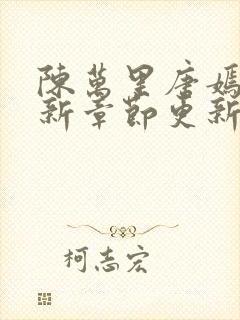 陳萬里唐嫣
新章節更新
柯志宏